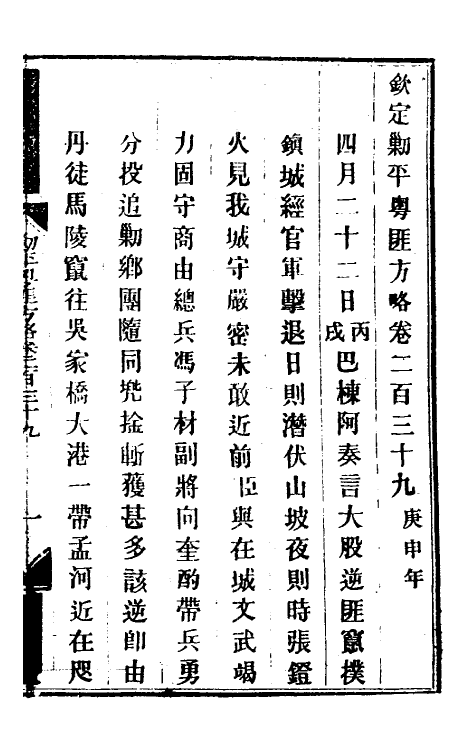 欽定勦平粵匪方略卷二百三十九庚申年
四月二十二日丙戌巴棟阿奏言大股逆匪竄撲
鎮城經官軍擊退日則潛伏山坡夜則時張鐙
火見我城守嚴密未敢近前臣與在城文武竭
力固守商由總兵馮子材副將向奎酌帶兵勇
分投追勦鄉團隨同兜捦斬獲甚多該逆卽由
丹徒馬陵竄往吳家橋大港一帶孟河近在咫
方略卷二百三十九
一